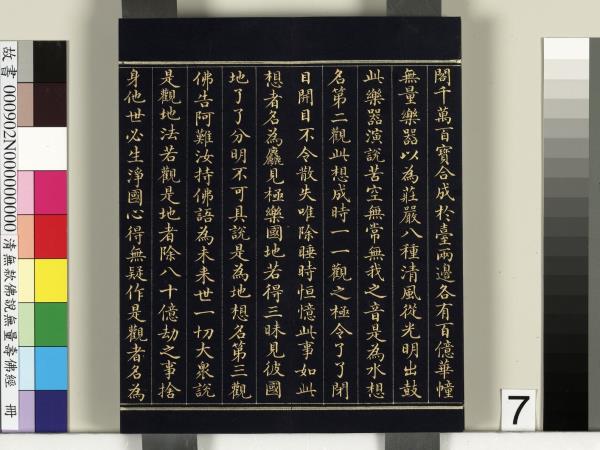 閣千萬百寶合成於臺兩邊各有百億華幢
無量樂器以為莊嚴八種清風從光明出鼓
此樂器演說苦空無常無我之音是為水想
名第二觀此想成時一一觀之極令了了閉
目開目不令散失唯除睡時恒憶此事如此
想者名為麤見極樂國地若得三昧見彼國
地了了分明不可具說是為地想名第三觀
佛告阿難汝持佛語為未來世一切大眾說
是觀地法若觀是地者除八十億劫之事捨
身他世必生淨國心得無疑作是觀者名為
故書 000902N000000000 清無款佛說無量壽佛經 冊
7